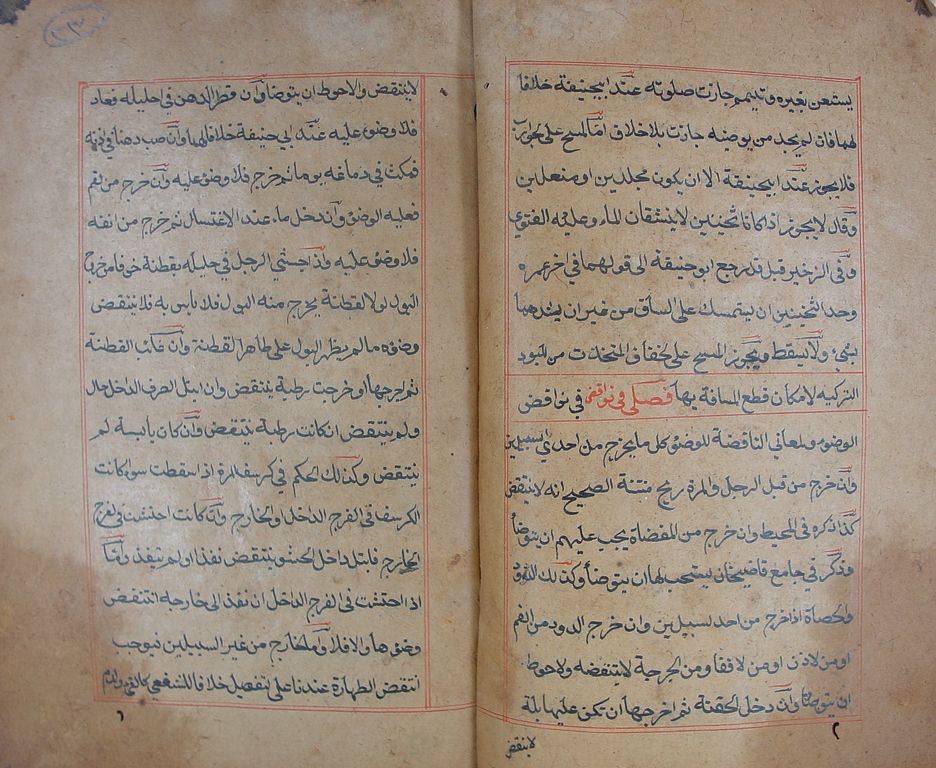 يستعن بغيره وتيمم جازت صلوته عند ابيحنيفة خلافا
لهما فان لم يجد من يوضئه جازت بلا خلاف اما المسح على الجورب
فلا يجوز عند ابيحنيفة الا ان يكون مجلدين او منعلين
وقال لا يجوز اذا كانا ثخينين لا ينشقان الماء وعليه الفتوي
وفى الزخير قيل قد رجع ابو حنيفة الى قولهما فى اخر عمره
وحد الثخينين ان يستمسك على الساق من غير ان يشدهما
بشيء ولا يسقط ويجوز المسح على الخفاف المتخذت من اللبود
التركيه لامكان قطع المسافة بها فصل فى نواقض فى نواقض
الوضوء ولمعانى الناقضة للوضوء كل ما يخرج من احدي السبيلين
وان خرج من قبل الرجل والمرة ريح منتنة الصحيح انه لا ينقض
كذا ذكره فى المحيط وان خرج من المفضاة يجب عليهم ان يتوضأ
وذكر في جامع قاضيخان يستحب لها ان يتوضأ وكذلك الدود
والحصاة اذا خرج من احد لسبيلين وان خرج الدود من الفم
او من لاذن او من لانف او من الجرحة لا ينتقضه ولاحوط
ان يتوضأ وان دخل الحقنة ثم اخرجها ان تكن عليها بلة
لا ينقض
٢
لا ينتقض والاحوط ان يتوضأ وان قطر الدهن في احليله فعاد
فلا وضوء عليه عند ابي حنيفة خلافا لهما وان صب دهنا في اذنه
فمكث في دماغه يوما ثم خرج فلا وضوء عليه وان خرج من الفم
فعليه الوضوء وان دخل ماء عند الاغتسال ثم خرج من انفه
فلا وضوء عليه واذا احتشي الرجل في احليله بقطنة خوفا من خروج
البول لولا القطنة يخرج منه البول فلا باس به فلا ينتقض
وضوءه ما لم يظهر البول على ظاهر القطنة وان غابت القطنة
ثم اخرجها او خرجت رطبة ينتقض وان ابتل الطرف الداخل حال
ولم ينتقض ان كانت رطبة ينتقض وان كان يابسة لم
ينتقض وكذلك الحكم في كرسف المرة اذ اسقطت سوا كانت
الكرسف فى الفرج الداخل او الخارج وان كانت احتشت فى الفرج
الخارج فابتل داخل الحشو ينتقض نفذ او لم ينفذ واما
اذا احتشت فى الفرج الداخل ان نفذ الى خارجه انتقض
وضوءها والا فلا وما الخارج من غير السبيلين فيوجب
انتقض الطهارة عندنا على تفصيل خلافا للشفعي كالقيء ولدم